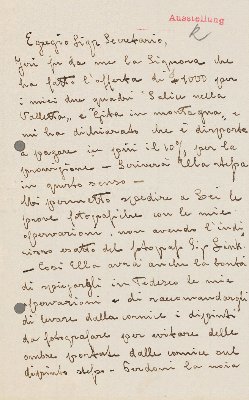 Ausstellung
Egregio Sigr Secretario,
Jeri fu da me la Signora che
ha fatto l'offerta di 1000 per
i miei due quadri Salice nella
Valletta, e Gita in montagna, e
mi ha dichiarato che è disposta
a pagare in più il 10%, per la
provvigione – Scriverà Ella stessa
in questo senso –
Mi permetto spedire a Lei le
prove fotografiche con le mie
osservazioni, non avendo l'indi
rizzo esatto del fotografo Sig
– Così Ella avrà anche la bontà
di spiegargli in Tedesco le mie
osservazioni e di raccomandargli
di levare dalla cornice i dipinti
da fotografare per evitare delle
ombre portate dalle cornice sul
dipinto stesso – Perdoni la noia